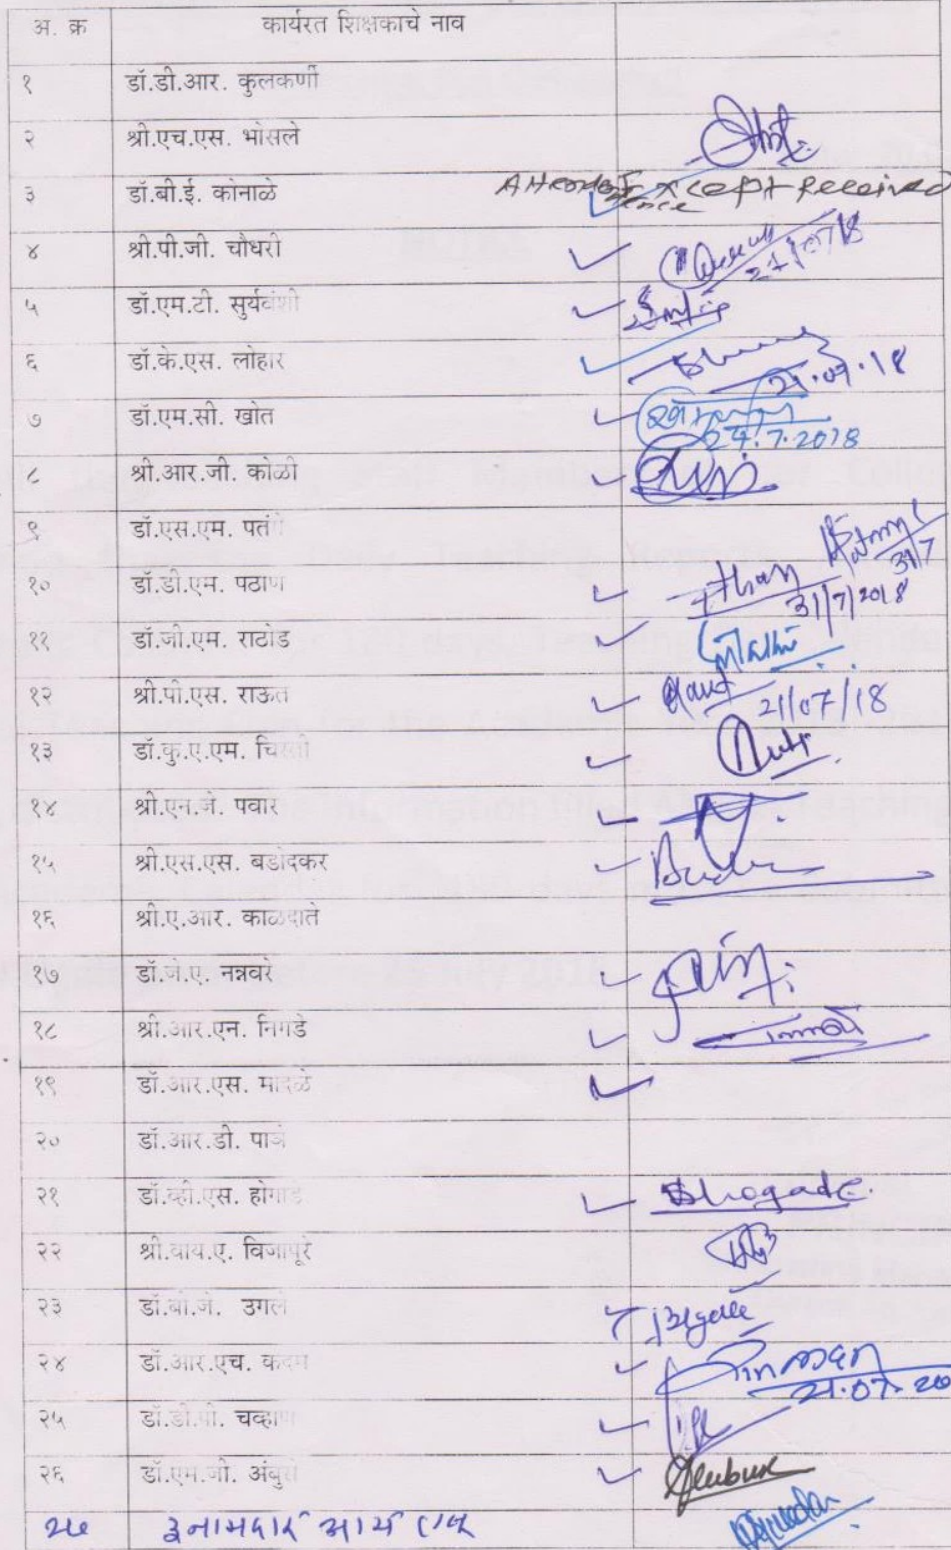 अ. क्र कार्यरत शिक्षकाचे नाव
१ डॉ.डी.आर. कुलकर्णी
२ श्री.एच.एस. भोसले
३ डॉ.बी.ई. कोनाळे Except Received
४ श्री.पी.जी. चौधरी 21/07/18
५ डॉ.एम.टी. सुर्यवंशी
६ डॉ.के.एस. लोहार 21.07.18
७ डॉ.एम.सी. खोत 24.7.2018
८ श्री.आर.जी. कोळी
९ डॉ.एस.एम. पतंगे 31/7
१० डॉ.डी.एम. पठाण 31/7/2018
११ डॉ.जी.एम. राठोड
१२ श्री.पी.एस. राऊत 21/07/18
१३ डॉ.कु.ए.एम. चिस्ती
१४ श्री.एन.जे. पवार
१५ श्री.एस.एस. बडोदकर
१६ श्री.ए.आर. काळदाते
१७ डॉ.जे.ए. नन्नवरे
१८ श्री.आर.एन. निगडे
१९ डॉ.आर.एस. मादळे
२० डॉ.आर.डी. पाञे
२१ डॉ.व्ही.एस. होगाडे Shogade
२२ श्री.वाय.ए. विजापूरे
२३ डॉ.बी.जे. उगले
२४ डॉ.आर.एच. कदम 21.07.20
२५ डॉ.डी.पी. चव्हाण
२६ डॉ.एम.जी. अंबुरे
२७ इनामदार